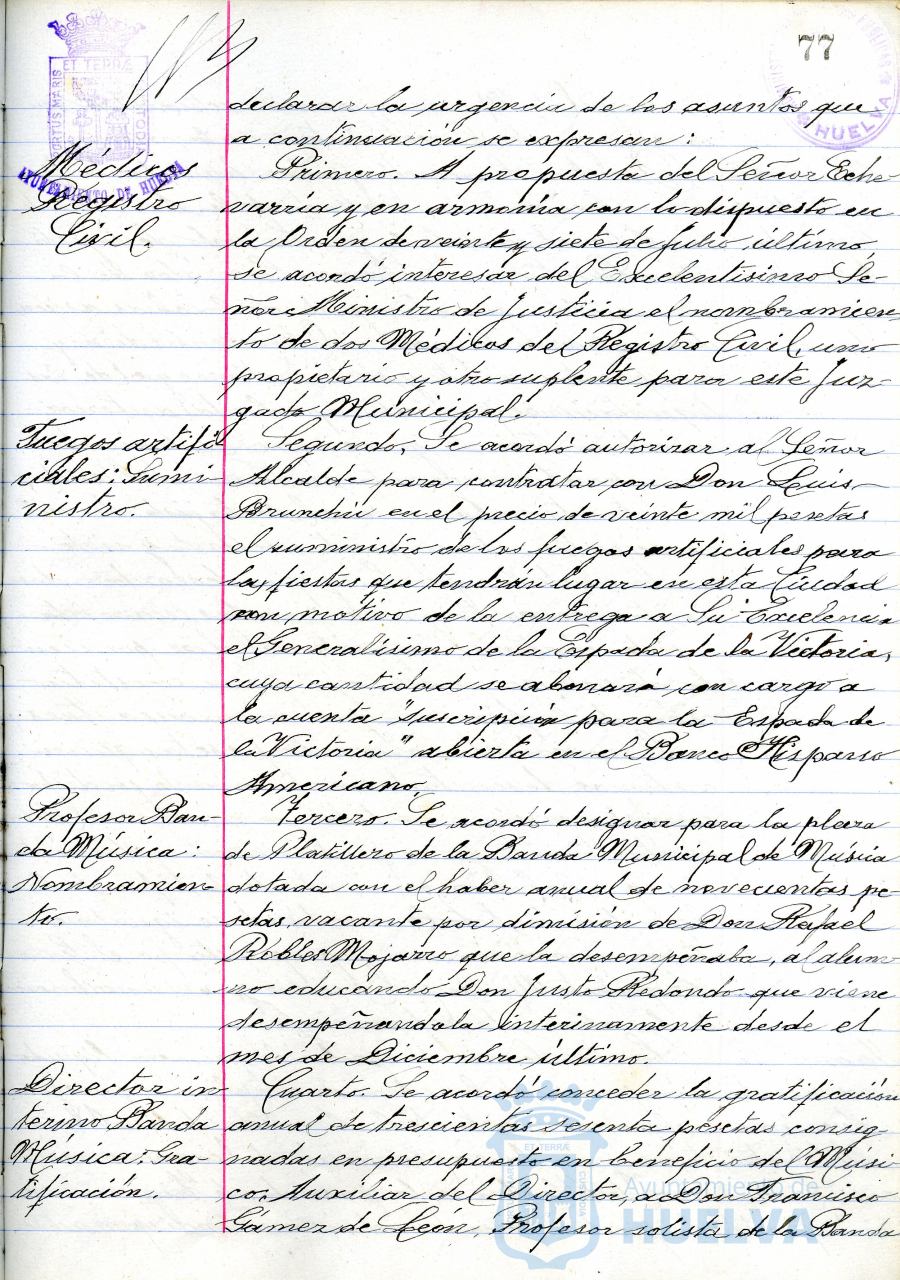 77
PORTUS MARIS
ET TERRÆ
CUSTODIA
AYUNTAMIENTO DE HUELVA
HUELVA
declarar la urgencia de los asuntos que
a continuación se expresan:
Médicos
Registro
Civil.
Primero. A propuesta del Señor Eche-
varría y en armonía con lo dispuesto en
la Orden de veinte y siete de Julio último,
se acordó interesar del Excelentísimo Se-
ñor Ministro de Justicia el nombramien-
to de dos Médicos del Registro Civil, uno
propietario y otro suplente para este Juz-
gado Municipal.
Fuegos artifi
ciales: Sumi-
nistro.
Segundo. Se acordó autorizar al Señor
Alcalde para contratar con Don Luis
Brunchú en el precio de veinte mil pesetas
el suministro de los fuegos artificiales para
las fiestas que tendrán lugar en esta Ciudad
con motivo de la entrega a Su Excelencia
el Generalísimo de la Espada de la Victoria,
cuya cantidad se abonará con cargo a
la cuenta "suscripción para la Espada de
la Victoria" abierta en el Banco Hispano
Americano.
Profesor Ban-
da Música:
Nombramien-
to.
Tercero. Se acordó designar para la plaza
de Platillero de la Banda Municipal de Música
dotada con el haber anual de novecientas pe-
setas, vacante por dimisión de Don Rafael
Robles Mojarro que la desempeñaba, al alum-
no educando Don Justo Redondo que viene
desempeñandola interinamente desde el
mes de Diciembre último.
Director in
terino Banda
Música: Gra-
tificación.
Cuarto. Se acordó conceder la gratificación
anual de trescientas sesenta pesetas consig-
nadas en presupuesto en beneficio del Músi
co, Auxiliar del Director, a Don Francisco
Gámez de León, Profesor solista de la Banda
Ayuntamiento de
HUELVA